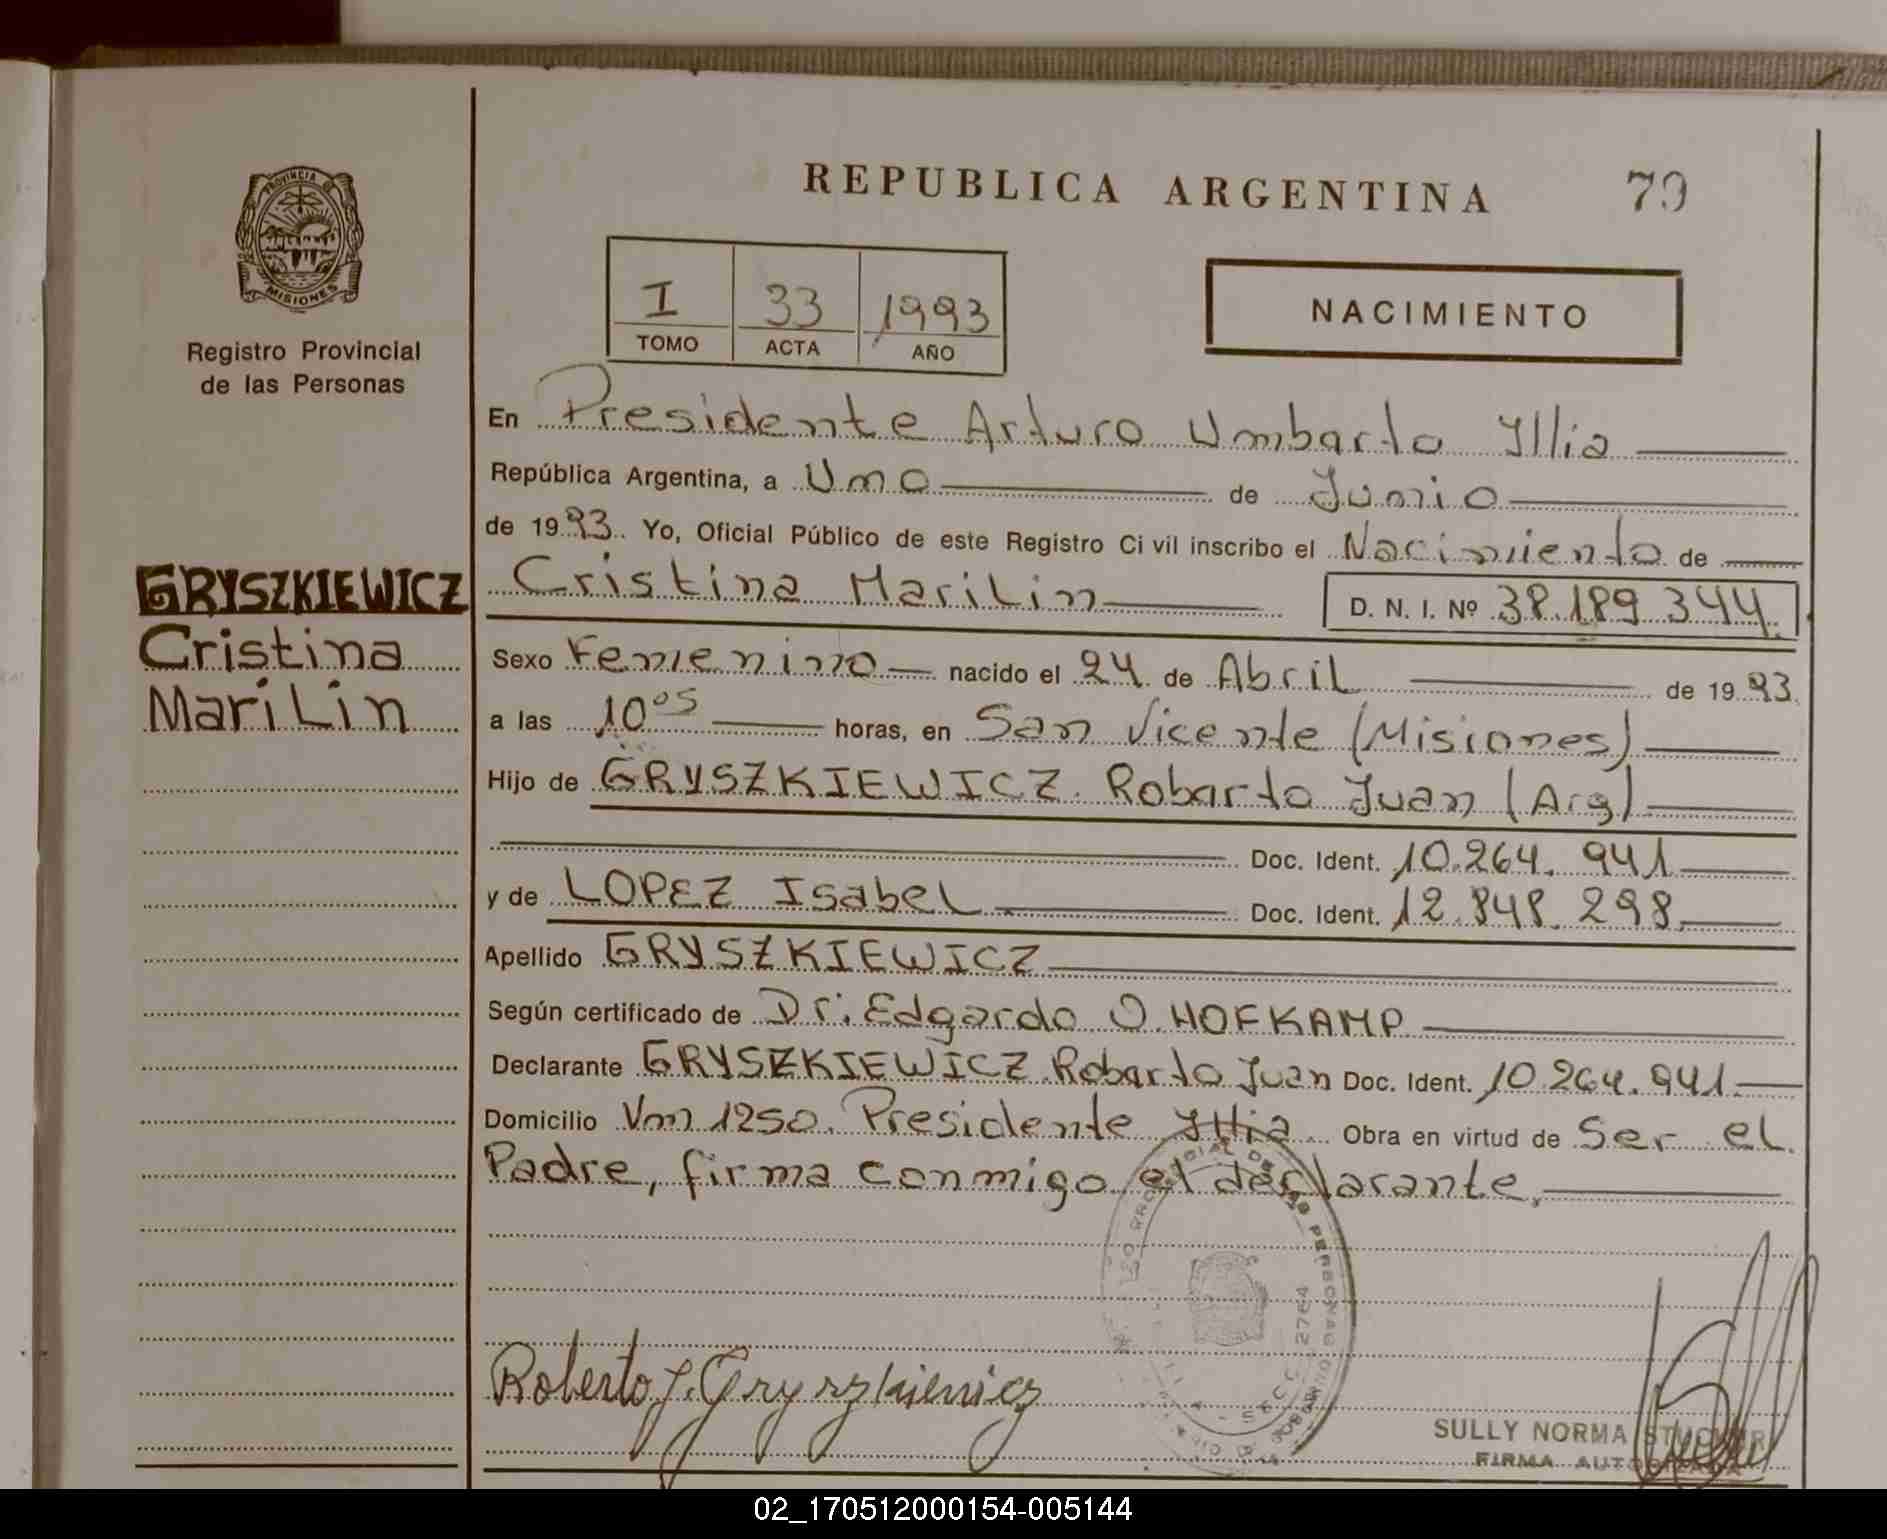 PROVINCIA DE
MISIONES
Registro Provincial
de las Personas
GRYSZKIEWICZ
Cristina
MariLin
REPUBLICA ARGENTINA 79
I 33 1993
TOMO ACTA AÑO
NACIMIENTO
En Presidente Arturo Umbarto Illia
República Argentina, a Uno de Junio
de 1993. Yo, Oficial Público de este Registro Civil inscribo el Nacimiento de
Cristina MariLin D. N. I. Nº 38.189.344
Sexo Femenino nacido el 24 de Abril de 1993.
a las 10⁰⁵ horas, en San Vicente (Misiones)
Hijo de GRYSZKIEWICZ Robarto Juan (Arg)
Doc. Ident. 10.264.941
y de LOPEZ Isabel Doc. Ident. 12.848.298
Apellido GRYSZKIEWICZ
Según certificado de Dr: Edgardo O. HOFKAMP
Declarante GRYSZKIEWICZ Robarto Juan Doc. Ident. 10.264.941
Domicilio Vm 1250. Presidente Illia Obra en virtud de Ser el
Padre, firma conmigo el declarante.
Roberto J. Gryszkiewicz
SECC. 2764
SULLY NORMA
FIRMA AUTORIZADA
02_170512000154-005144